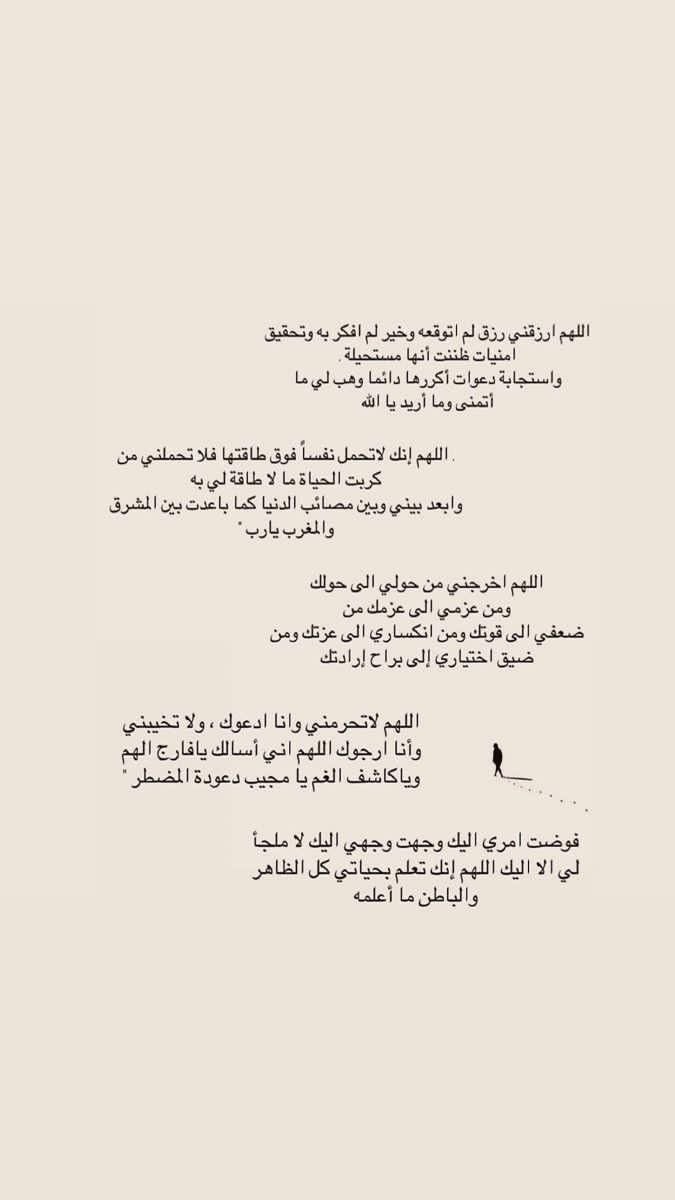 اللهم ارزقني رزق لم اتوقعه وخير لم افكر به وتحقيق
امنيات ظننت أنها مستحيلة .
واستجابة دعوات أكررها دائما وهب لي ما
أتمنى وما أريد يا الله
. اللهم إنك لاتحمل نفساً فوق طاقتها فلا تحملني من
كربت الحياة ما لا طاقة لي به
وابعد بيني وبين مصائب الدنيا كما باعدت بين المشرق
والمغرب يارب "
اللهم اخرجني من حولي الى حولك
ومن عزمي الى عزمك من
ضعفي الى قوتك ومن انكساري الى عزتك ومن
ضيق اختياري إلى براح إرادتك
اللهم لاتحرمني وانا ادعوك ، ولا تخيبني
وأنا ارجوك اللهم اني أسالك يافارج الهم
وياكاشف الغم يا مجيب دعودة المضطر "
فوضت امري اليك وجهت وجهي اليك لا ملجأ
لي الا اليك اللهم إنك تعلم بحياتي كل الظاهر
والباطن ما أعلمه